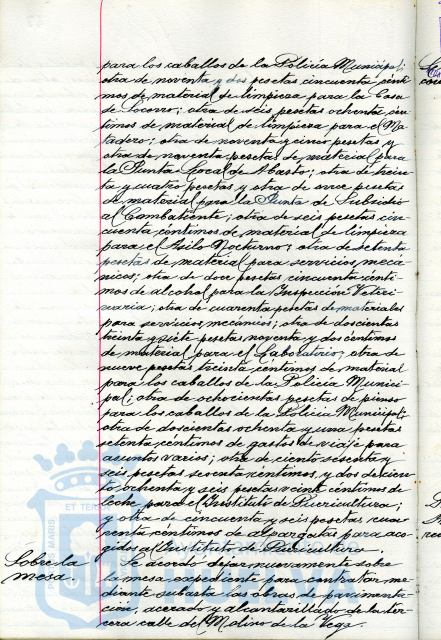 para los caballos de la Policia Municipal;
otra de noventa y dos pesetas cincuenta cénti-
mos de material de limpieza para la Casa
de Socorro; otra de seis pesetas ochenta cén-
timos de material de limpieza para el Ma-
tadero; otra de noventa y cinco pesetas y
otra de noventa pesetas de material para
la Junta Local de Abasto; otra de trein-
ta y cuatro pesetas y otra de once pesetas
de material para la Junta de Subsidio
al Combatiente; otra de seis pesetas cin-
cuenta céntimos de material de limpieza
para el Asilo Nocturno; otra de setenta
pesetas de material para servicios mecá-
nicos; otra de doce pesetas cincuenta cénti-
mos de alcohol para la Inspección Veteri-
naria; otra de cuarenta pesetas de materiales
para servicios mecánicos; otra de doscientas
treinta y siete pesetas noventa y dos céntimos
de material para el Laboratorio; otra de
nueve pesetas treinta céntimos de material
para los caballos de la Policia Munici-
pal; otra de ochocientas pesetas de pienso
para los caballos de la Policia Municipal;
otra de doscientas ochenta y una pesetas
setenta céntimos de gastos de viaje para
asuntos varios; otra de ciento sesenta y
seis pesetas sesenta céntimos, y dos de cien-
to ochenta y seis pesetas veinte céntimos de
leche para el Instituto de Puericultura;
y otra de cincuenta y seis pesetas cua-
renta céntimos de alpargatas para aco-
gidos al Instituto de Puericultura.
Sobre la mesa.
Se acordó dejar nuevamente sobre
la mesa expediente para contratar me-
diante subasta las obras de pavimenta-
ción, acerado y alcantarillado de la ter-
cera calle del Molino de la Vega.